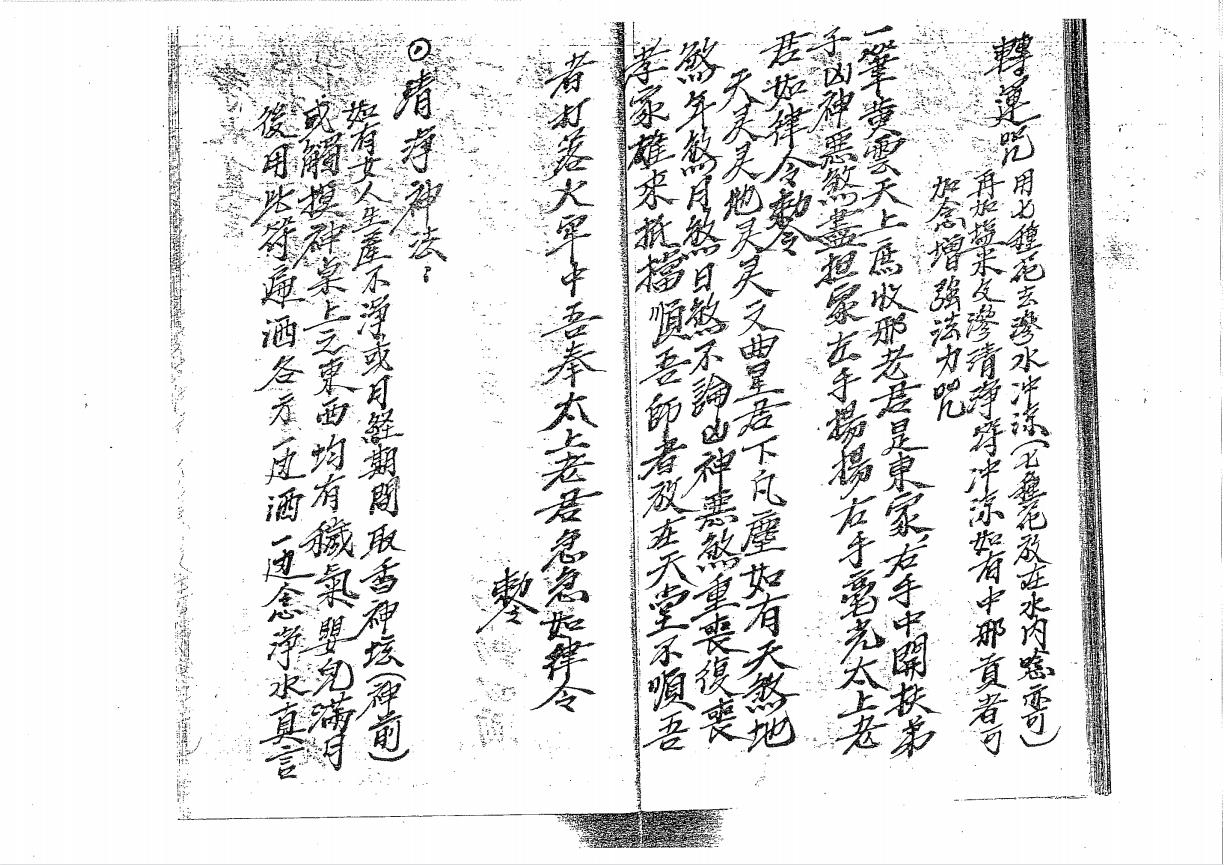 轉運咒 用七種花去滲水冲涼(七種花放在水内唸亦可)
再加塩米文滲清淨符冲涼如有中邪貢者可
加念增強法力咒
一筆黄雲天上馬收邪老君是東家右手中開扶弟
子凶神惡煞盡担家左手揚揚右手毫光太上老
君如律令勅令
天灵灵地灵灵文曲星君下凡塵如有天煞地
煞年煞月煞日煞不論凶神惡煞重喪復喪
孝家雄來抵擋順吾師者放在天堂不順吾
者打落火軍中吾奉太上老君急急如律令
勅令
清淨神法:
如有女人生產不淨或月経期間取香神坛(神前)
或觸摸神桌上之東西均有穢氣嬰兒滿月
後用此符遍洒各方一边洒一边念淨水真言